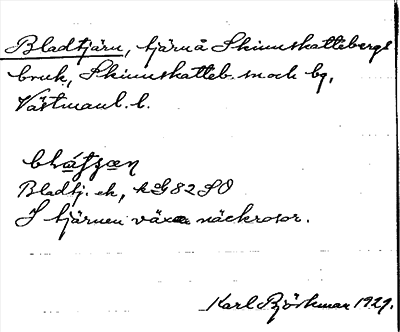 Bladtjärn, tjärn å Skinnskattebergs
bruk, Skinnskatteb. sn och bg,
Västmanl. l.
Bladtj. ek, 82 SO
I tjärnen växa näckrosor.
Karl Björkman 1929.